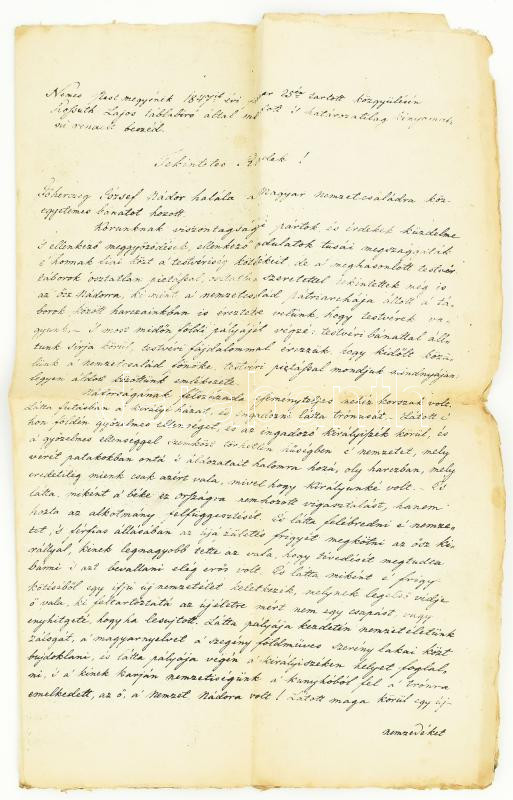 Nemes Pest megyének 1847ik évi 25én tartott közgyülésén
Kossuth Lajos táblabiró által határozatilag kinyomat-
ni rendelt beszéd.
Tekintetes Rendek!
Főherczeg József Nádor halála a Magyar nemzetcsaládra köz-
egyetemes bánatot hozott.
Korunknak viszontagságai pártok és érdekek küzdelme
's ellenkező meggyőződések, ellenkező indulatok tusái megszaggaták
e' honnak fiai közt a' testvériség kötelékeit de a' meghasonlott testvér
táborok osztatlan pietással, osztatlan szeretettel tekintettek még is
az ősz Nádorra, ki mint a' nemzetcsalád patriarchája állott a' tá-
borok között harczainkban és érezteté velünk, hogy testvérek va-
gyunk. – 'S most midőn földi pályáját végzé: testvéri bánattal állu-
tunk sirja körül, testvéri fájdalommal érezzük, hogy kidőlt közü-
lünk a' nemzetcsalád főnöke, testvéri pietással mondjuk mindnyájan
legyen áldott közöttünk emlékezete.
Nádorságának félszázada eseményteljes nehéz korszak volt.
Látta futásban a' királyi házat, és ingadozni látta trónusát. Látott e'
hon földén győzelmes ellenséget, és az ingadozó királyiszék körül, és
a' győzelmes ellenséggel szemközt törhetlen hűségben e' nemzetet, mely
vérét patakokban ontá 's áldozatait halomra hozá, oly harczban, mely
eredetileg mienk csak azért vala, mivel hogy királyunké volt. – És
látta, miként a' béke ez országra nem hozott vigasztalást, hanem
hozta az alkotmány felfüggesztését. És látta felébredni e' nemze-
tet, 's férfias állásában az ujászületés frigyét megkötni az ősz ki-
rállyal, kinek legnagyobb tette az vala, hogy tévedését megtudta
bánni 's azt bevallani elég erős volt. És látta miként e' frigy
kötéséből egy ifjú új nemzetélet keletkezék, melynek legelső védje
ő vala, ki feltartóztatá az új életre mért nem egy csapást, vagy
enyhitgeté, hogyha lesujtott. Látta pályája kezdetén nemzetiségünk
zálogát, a' magyarnyelvet a' szegény földmüves szerény lakai közt
bujdoklani, és látta pályája végén a' királyiszéken helyet foglal-
ni, 's a' kinek karján nemzetiségünk a' kunyhóból fel a' trónra
emelkedett, az ő, a' nemzet Nádora volt! Látott maga körül egy új-
nemzedéket